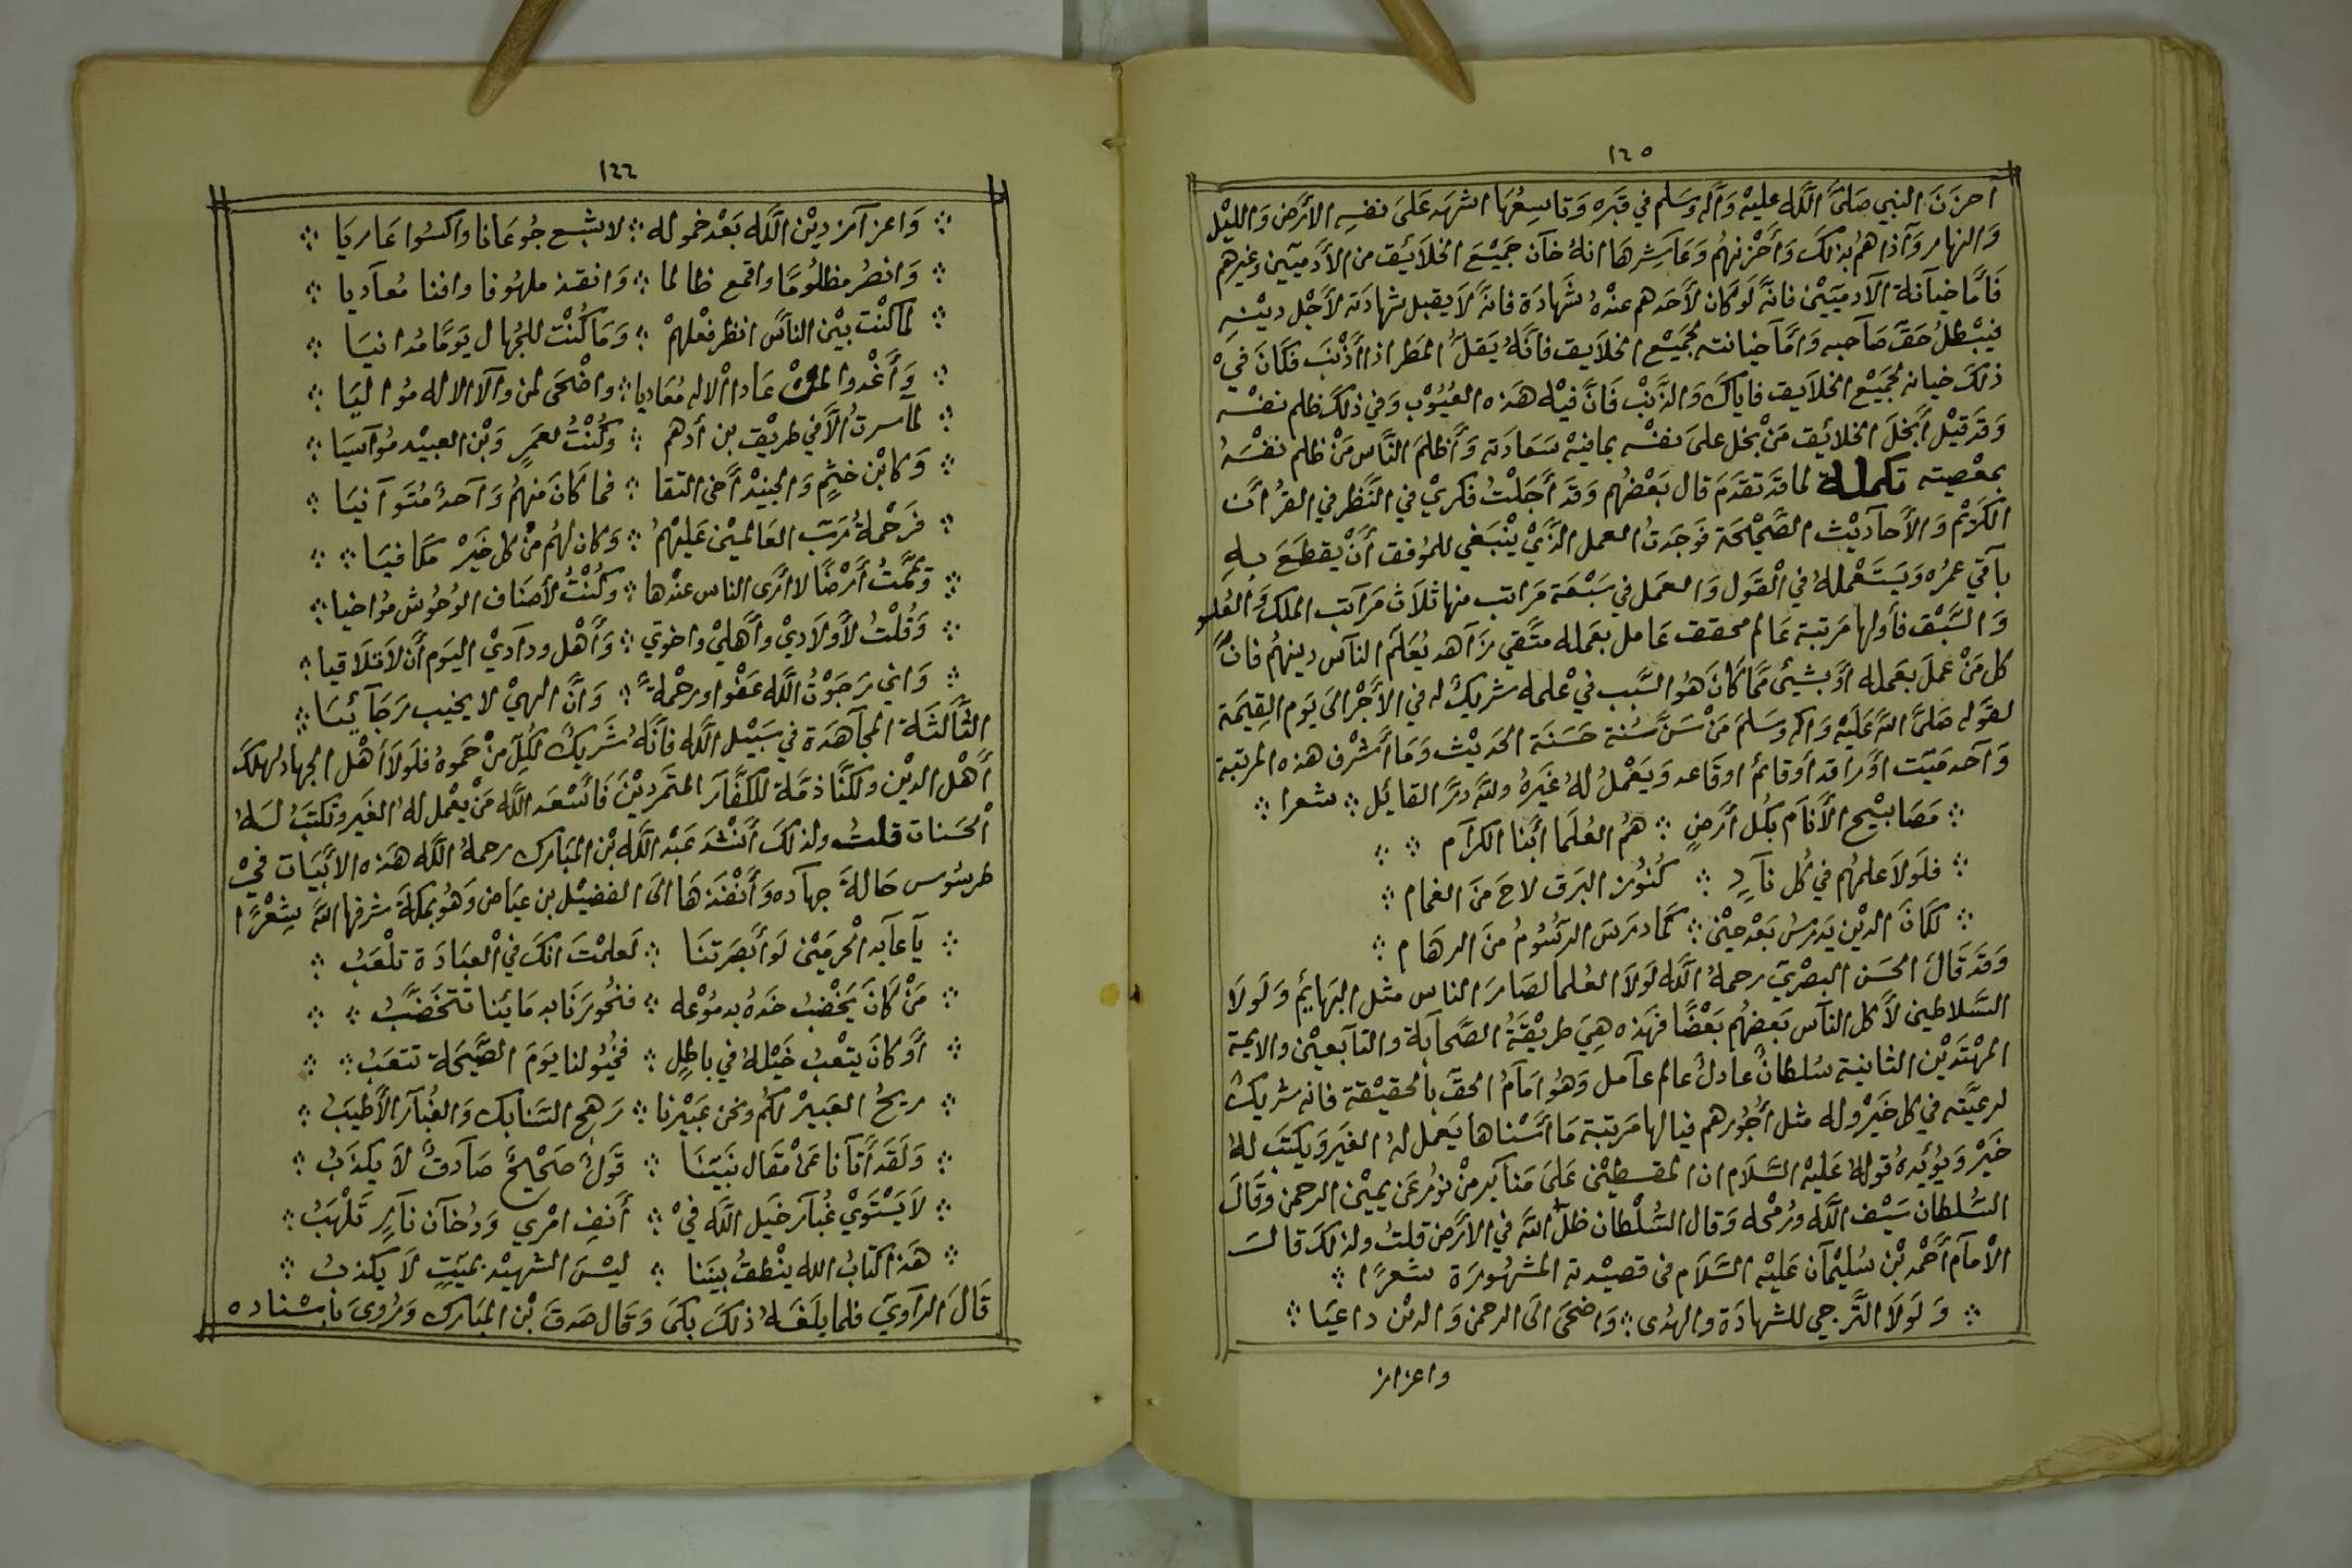 ١٢٥
احزن النبي صَلىَّ اللَّه عليهْ وَآله وَسَلم في قبَره وَتاسِعُهَا اشهَد عَلىَ نفسِه الأرَض وَالليْل
وَالنهار وَآذاهم بذلكَ وَأحَزنهُم وَعَاشِرهَا انهُ خآن جَميْعَ الخلاَئق من الأدَميّين وَغيرهم
فَامَّا خيآنة الآدميّيْن فانهَّ لَو كان لأحَدهم عنْدهُ شهَادَة فانهَّ لاَ يقبل شهادَته لأجْل دينْه
فيَبْطلُ حَقّ صَآحبه وَامَّا خيانته لجَميْع الخلاَيق فانَّهُ يَقلُّ المَطر اذا أذَنْبَ فكَانَ فيْ
ذلكَ خيانه لجَميْع الخلاَيق فاياكَ وَالذَّنْب فَانَّ فيْه هَذه العُيُوْب وَفي ذلكَ ظلم نفسْه
وَقدَ قيْل أبَخلَ الخلائق مَنْ بخل علىَ نفسْه بمافيهْ سَعَادَته وَأظلمَ النَّاس مَنْ ظلم نفسَهُ
بمعْصيته تكملة لما قدَ تقدَمَ قال بَعْضهُم وَقدَ أجَلْتُ فكريْ في النَّظر في القرُأن
الكرَيْم وَالأحآديْث الصَّحْيحَة فوَجَدتُ العمل الذَّيْ ينْبَغي للمُوفق أنَ يقطَعَ به
بآقي عمرُه وَيَستَعْملهُ في الْقوَل وَالعمَل في سَبْعَة مَراتب منها ثلاَث مَرآتب الملك وَالعُلو
وَالسَّبْق فأولها مَرتبة عَالم محقق عَامل بعَمله متَّقي زآهد يُعَلمَ النآس دينهُم فانَّ
كل مَنْ عملَ بعَمله أوَ بشيئ ممَّا كَانَ هُو السَّبب فيْ علمه شريكٌ له في الأجَْر الىَ يوَم القيمَة
لقوَله صَلىَّ اللهَّ عَلَيْه وَاله وَسَلمَ مَنْ سَنَّ سُنة حَسَنَة الحَديْث وَمَا أشَرْف هذه المرتبة
وَآحد مَيّت أوَ راقد أوَ قائمُ اوقَاعد وَيَعْملُ لهُ غَيرهُ ولله دَرُّ القايَل ؞ شعرا ؞
؞ مَصَابيْح الأنَآم بكُل أرَضٍ ؞ هُمُ العُلمَا أبَنا الكرَآم ؞ ؞
؞ فلَولاَ علمهُم في كُل نآدٍ ؞ كُنوُر البرَق لاحَ منَ الغمام ؞
؞ لكَانَ الديْن يَدرسُ بَعْد حيْن ؞ كَمَا درَسَ الرسُّوُمُ منَ الرهَام ؞
وَقدَ قَالَ الحَسَن البصْريّ رحمهُ اللَّه لوَلاَ العُلمَا لصَارَ الناس مثل البَهايَم وَلَولاَ
السَّلاطين لأكَل النآس بَعضهُم بَعْضًا فهَذه هِيَ طريقْةُ الصَّحآبَة والتآبعيْن والايمة
المهْتدَيْن الثانية سُلطانٌ عادلُ عالم عآمل وَهُو امَآمُ الحقّ بالحقيقْة فانه شريكٌ
لرعيَّته في كل خَيْر وله مثل أجُوُرهم فيالها مَرتبة مَا أسْناها يَعمل لهُ الغيَر وَيكتبَ لهُ
خَيْر وَيُويَّدهُ قولهُ عَليْه السَّلاَم ان المقسطيْن عَلىَ مَنآبَر منْ نوُر عَن يميْن الرحمن وَقالَ
السُّلطان سَيْف اللَّه ورُمْحه وَقال السُّلْطان ظلّ اللهَّ في الأرَض قلتُ ولذلكَ قالَ
الامآم أحَمْد بْن سُليْمآن عَليْه السَّلاَم فى قصيْدته المشهُورَة شعرًا ؞
؞ وَلَولاَ التَّرجي للشهادَة والهدُى ؞ وَاضحَى الىَ الرحمن وَالدين داعيَا ؞
واعزاز
١٢٦
؞ وَاعزآز ديْن اللَّه بَعْد خموله ؞ لاشبع جُوعَانا واكسُوا عَاريَا ؞
؞ وَانصُر مظلوُمًا واقمع ظالما ؞ وَانقذ ملهُوفا وافنا مُعآديا ؞
؞ لمَا كنْت بيْن النآس انظر فعْلهمْ ؞ وَمَا كُنْت للجُهال يوَمًا مُدانيَا ؞
؞ وَأغَْدوا لمنْ عَادا الْاله مُعَاديا ؞ واضْحَى لمن والآ الاله مُواليَا ؞
؞ لمآسرتُ الاَّ في طريْق بن أدهم ؞ وكُنْتُ لعمَرٍ وَبْن العبيْد مُوآسيَا ؞
؞ وَكابْن خثيْم وَالجنيدْ أخى التقا ؞ فما كَانَ منهُم وَآحدُ مُتوَآنيَا ؞
؞ فرَحْمةُ رَبّ العَالميْن عَليْهمُ ؞ وَكان لهُم منْ كل خَيرْ مكَافيَا ؞ ؞
؞ وَيمَّمتُ أرَضًا لا أرَى الناس عندْها ؞ وكُنْتُ لأصَناف الوُحُوش مُواخيا ؞
؞ وَقُلْتُ لأولاَديْ وأهَليْ واخوتي ؞ وَأهَْل ودآديْ اليوَم أنَ لاَ تلاَقيا ؞
؞ وَاني رَجَوْتُ اللَّه عَفْوا ورحْمة ؞ وَانَّ الهيْ لا يخيب رَجَآئيَا ؞
الثَّالثَة المجآهَدَة في سَبيْل اللَّه فانَّهُ شَريكُ لكُلّ منْ حَموهُ فلوَلاَ أهْل الجهاد لهلكَ
أهَْل الديْن ولكنَّا ذمَّة للكفَّار المتمَرديْنَ فَاسْعَد اللَّه مَنْ يعْمل لهُ الغيَر وتكتبَُ لهُ
الحَسنات قلت ولذلكَ أنَْشَد عَبْد اللَّه بْن المبَارك رحمهُ اللَّه هَذه الأبيَات فيْ
طرسُوس حَالةَ جهآده وَأنَْفذَهَا الىَ الفضيْل بن عيَاض وَهُو بمكةَ شرفها اللهَّ شعْرًا
؞ يآعآبد الْحرميْن لوَ أبَصَرتنَا ؞ لعلمْتَ انكَ في الْعبَادَة تلْعَبُ ؞
؞ مَنْ كَانَ يَخْضبُ خدَهُ بدموُعه ؞ فنحُورَنَا بدمَائنا تتخَضَّبُ ؞ ؞
؞ أوَ كانَ يتْعبُ خَيْلهُ في باطل ؞ فخُيُولنا يوَمَ الصَّيَحة تتعَبُ ؞ ؞
؞ ريحُ العَبيرْ لكُم ونحن عَبيْرنا ؞ رَهجُ السَّنابك وَالغُبآر الأطيَبُ ؞
؞ وَلقدَ أتَانا عَنْ مقَال نَبيّنَا ؞ قوَلُ صَحْيحٌ صَآدقُ لاَ يكذَبُ ؞
؞ لاَ يَسْتَوَيْ غُبآر خَيل اللَّه فيْ ؞ أنَفِ امْري وَدُخآن نآرٍ تلْهَبُ ؞
؞ هَذا كتابُ الله ينْطقُ بيَننا ؞ ليْسَ الشهيْد بميّتٍ لاَ يكذبُ ؞
قَالَ الرآويَ فلما بلَغَهُ ذلكَ بكىَ وَقَال صَدقَ بْن المبَارك وَرُوىَ باسْناده